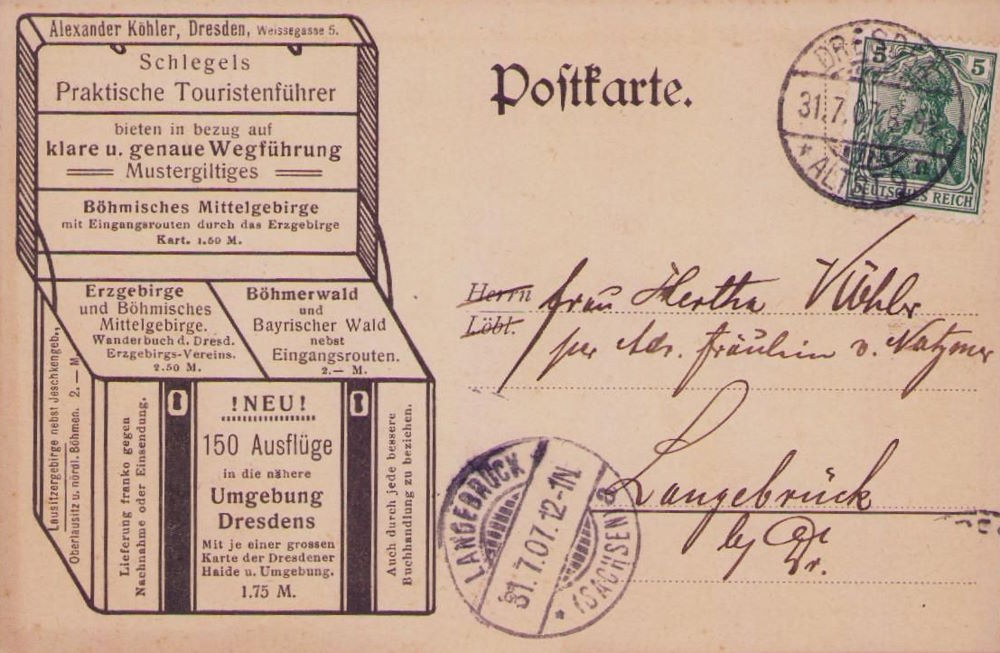 Alexander Köhler, Dresden, Weissegasse 5.
Schlegels
Praktische Touristenführer
bieten in bezug auf
klare u. genaue Wegführung
Mustergiltiges
Böhmisches Mittelgebirge
mit Eingangsrouten durch das Erzgebirge
Kart. 1.50 M.
Erzgebirge
und Böhmisches
Mittelgebirge.
Wanderbuch d. Dresd.
Erzgebirgs-Vereins.
2.50 M.
Böhmerwald
und
Bayrischer Wald
nebst
Eingangsrouten.
2.— M.
Lausitzergebirge nebst Jeschkengeb.,
Oberlausitz u. nördl. Böhmen. 2.— M.
Lieferung franko gegen
Nachnahme oder Einsendung.
!NEU!
150 Ausflüge
in die nähere
Umgebung
Dresdens
Mit je einer grossen
Karte der Dresdener
Haide u. Umgebung.
1.75 M.
Auch durch jede bessere
Buchhandlung zu beziehen.
Postkarte.
DRESDEN
31.7.07
* ALTST.
5 5
DEUTSCHES REICH
Herrn
Löbl.
Frau Hertha Köhler
per Adr. Fräulein v. Natzmer
Langebrück
by
Dr.
LANGEBRÜCK
31.7.07.12-1N.
* (SACHSEN) a